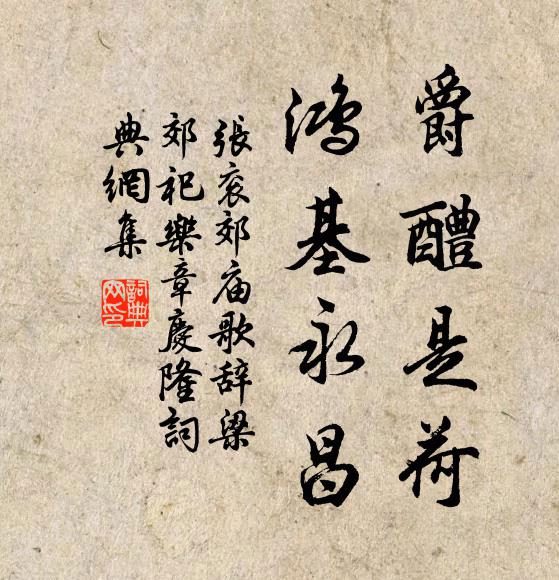 爵醴是荷
鸿基永昌
張衮郊庙歌辞梁
郊祀樂章慶隆詞
典網集
詞典
网印